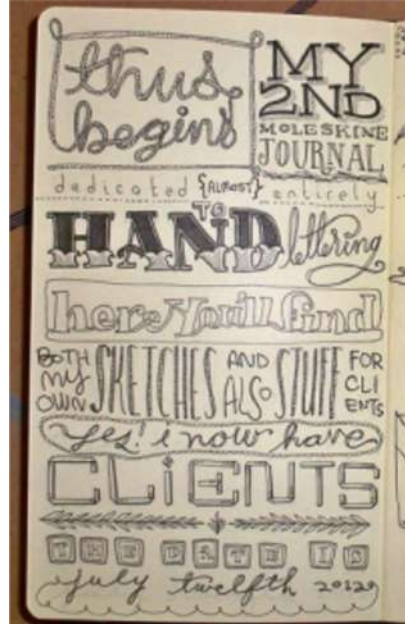 thus begins
MY 2ND MOLESKINE JOURNAL
dedicated {ALMOST} entirely
TO
HAND lettering
here you'll find
BOTH MY OWN SKETCHES AND ALSO STUFF FOR CLIENTS
yes! i now have
CLiENTS
THE DATE IS
july twelfth